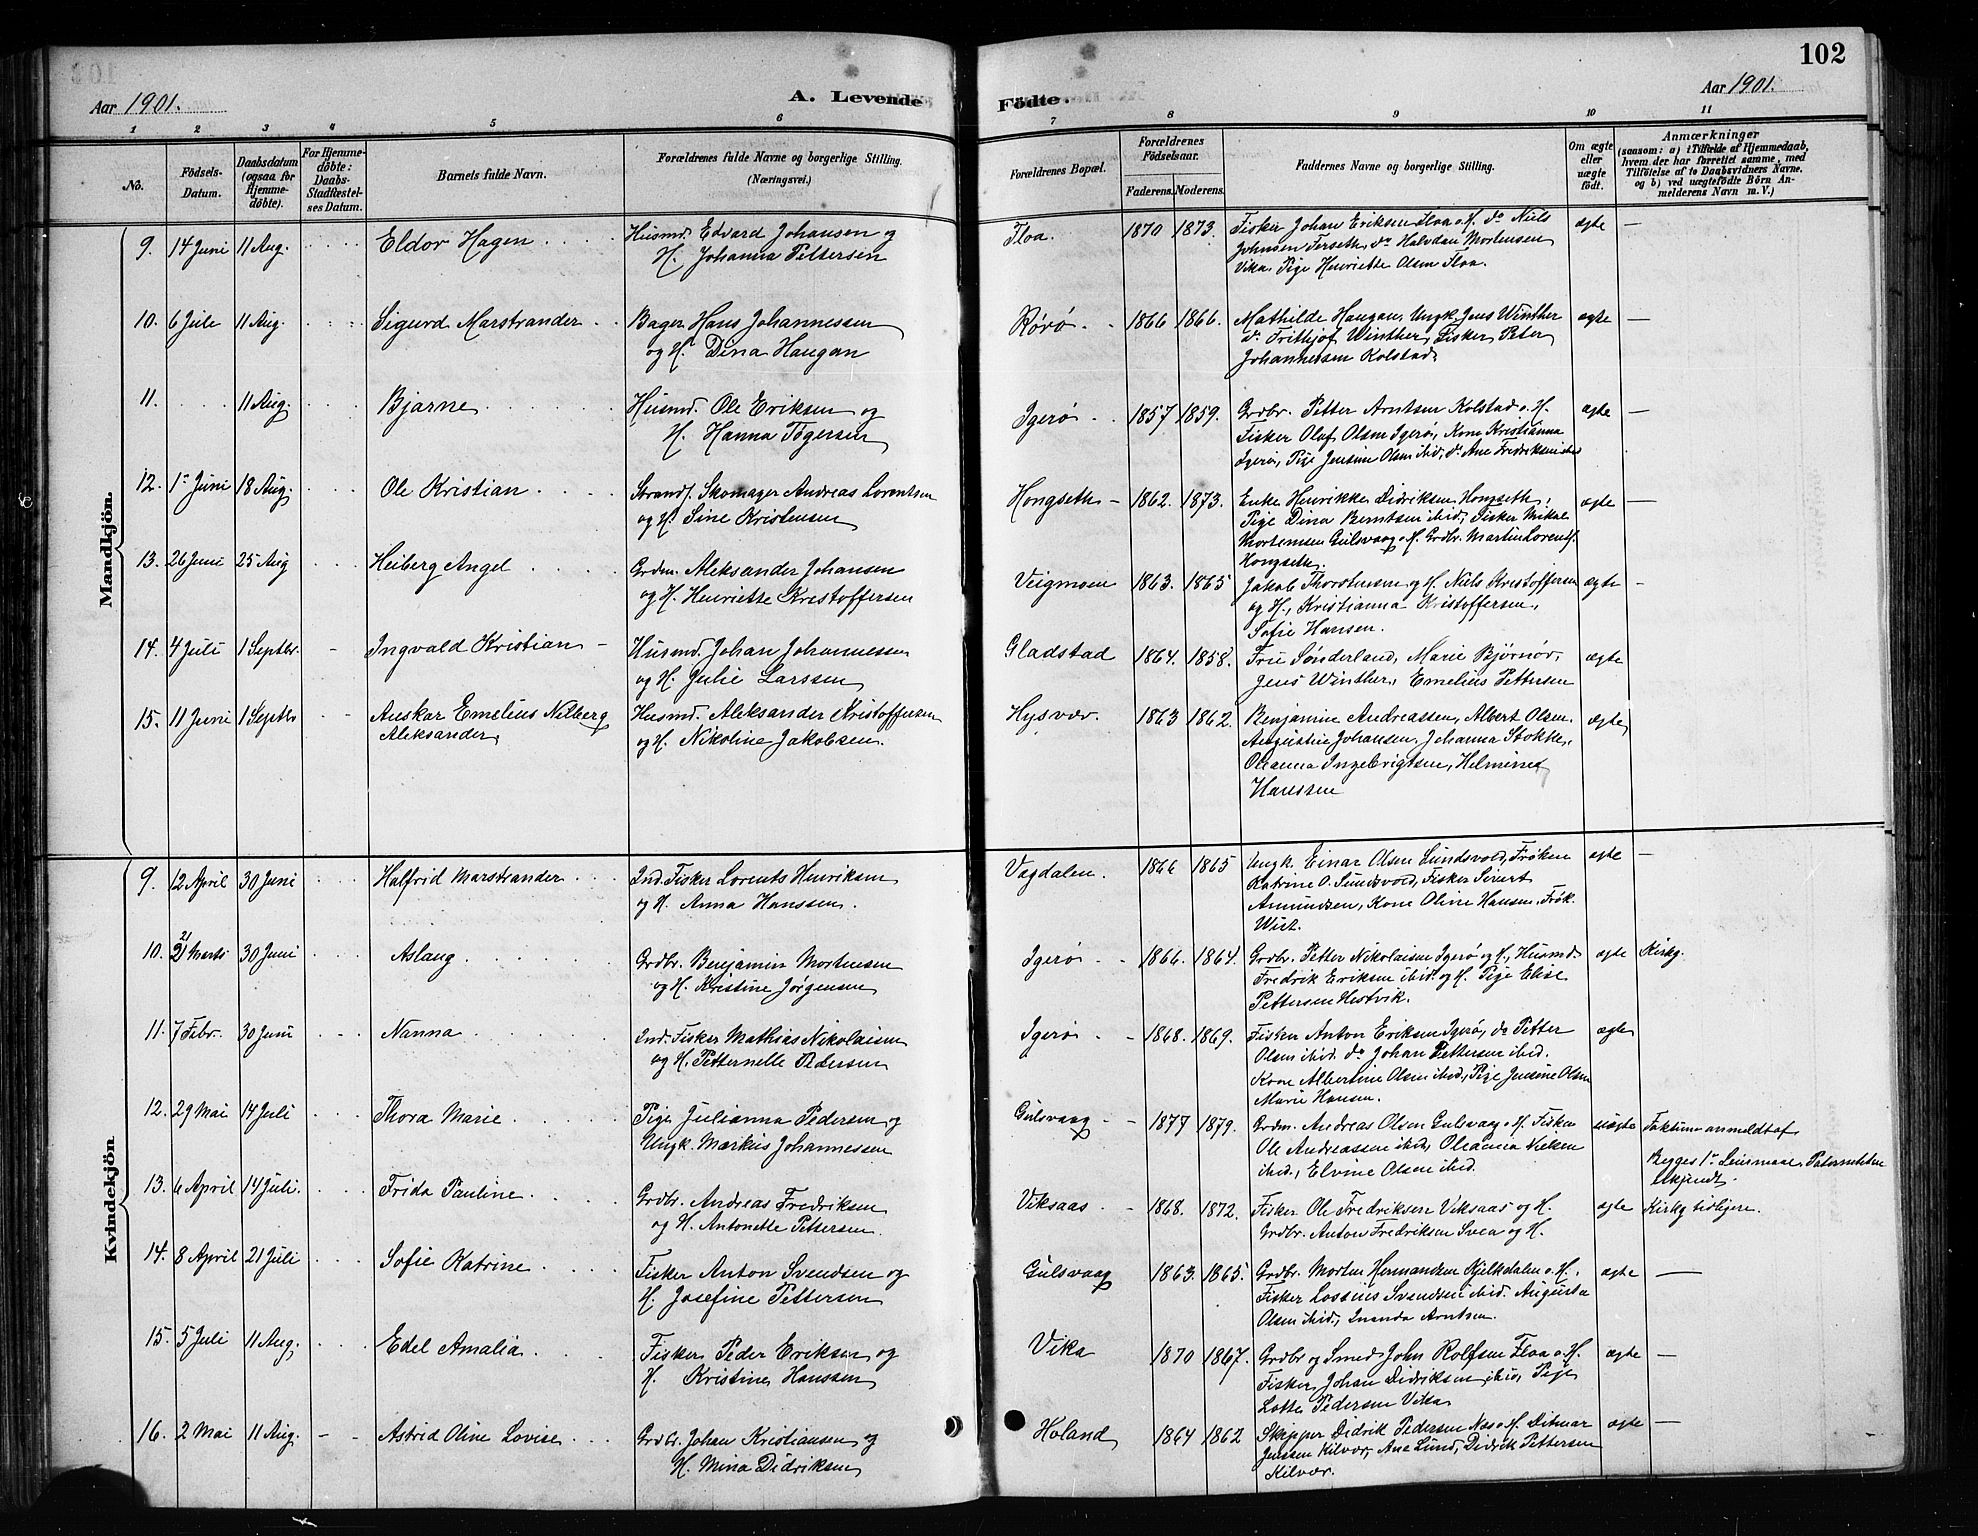 102
Aar 1901.
A. Levende
Födte.
Aar 1901.
1 2 3 4 5 6 7 8 9 10 11
No.
Födsels-
Datum.
Daabsdatum
(ogsaa for
Hjemme-
döbte).
For Hjemme-
döbte:
Daabs-
Stadfæstel-
ses Datum.
Barnets fulde Navn.
Forældrenes fulde Navne og borgerlige Stilling.
(Næringsvei.)
Forældrenes Bopæl.
Forældrenes
Födselsaar.
Faderens. Moderens.
Faddernes Navne og borgerlige Stilling.
Om ægte
eller
uægte
født.
Anmærkninger
(saasom: a) i Tilfælde af Hjemmedaab,
hvem der har forrettet samme, med
Tilföielse af to Daabsvidners Navne.
og b) ved uægtefödte Börn An-
melderens Navn m. V.)
Mandkjön.
9. 14 Juni 11 Aug. Eldor Hagen
Husmd. Edvard Johansen og
H. Johanna Pettersen
Floa. 1870 1873.
Fisker Johan Eriksen Floa o. H. do Niels
Johnsen Ferseth, do Halvdan Mortensen
Vika. Pige Henriette Olsen Floa.
ægte —
10. 6 Juli 11 Aug. Sigurd Marstrander
Bager Hans Johannessen
og H. Dina Haugan
Rørø 1866 1866.
Mathilde Haugan, Ungk. Jens Winther
do Frithjof Winther, Fisker Peter
Johannessen Kolstad.
ægte —
11. 11 Aug. Bjarne
Husmd. Ole Eriksen og
H. Hanna Tøgersen
Igerø 1857 1859.
Grdbr. Petter Arntsen Kolstad o. H.
Fisker Oluf Olsen Igerø, Kone Kristianna
Igerø, Pige Jensine Olsen ibid, do Ane Fredriksen ibid
ægte —
12. 1 Juni 18 Aug. Ole Kristian
Strands. Skomager Andreas Lorentsen
og H. Sine Kristensen
Hongseth 1862. 1873.
Enke Henrikke Didriksen Hongseth,
Pige Dina Berntsen ibid, Fisker Mikal
Mortensen Gulsvaag o. H. Grdbr. Martin Lorents.
Hongseth.
ægte —
13. 26 Juni 25 Aug Heiberg Angel
Grdm. Aleksander Johansen
og H. Henriette Kristoffersen
Veigmoen 1863. 1865
Jakob Thorstensen og H. Niels Kristoffersen
og H., Kristianna Kristoffersen,
Sofie Hansen.
ægte —
14. 4 Juli 1 Septbr. Ingvald Kristian
Husmd. Johan Johannessen
og H. Julie Larssen
Gladstad 1864. 1858.
Fru Sønderland, Marie Bjørnør,
Jens Winther, Emelius Pettersen
ægte
15. 11 Juni 1 Septbr Anskar Emelius Nilberg
Aleksander
Husmd. Aleksander Kristoffersen
og H. Nikoline Jakobsen.
Hysvær. 1863 1862.
Benjamine Andreassen, Albert Olsen.
Augustine Johansen, Johanna Stokke,
Oleanna Ingebrigtsen, Helmine
Hanssen
ægte
Kvindekjön.
9. 12 April 30 Juni Halfrid Marstrander
Ind. Fisker Lorents Henriksen
og H. Anna Hanssen.
Vagdalen. 1866 1865
Ungk. Einar Olsen Sundsvold, Frøken
Katrine O. Sundsvold, Fisker Sivert
Amundsen, Kone Olive Hansen, Frøk.
Wist.
ægte —
10. 21 Marts 30 Juni Aslaug
21
Grdbr. Benjamin Mortensen
og H. Kristine Jørgensen
Igerø 1866. 1864.
Grdbr. Petter Nikolaisen Igerø og H., Husmd.
Fredrik Eriksen ibid. og H. Pige Elise
Pettersen Hestvik.
ægte Kirkg.
11. 7 Febr. 30 Juni Nanna
Ind. Fisker Mathias Nikolaisen
og H. Petternelle Pedersen
Igerø 1868. 1869.
Fisker Anton Eriksen Igerø, do Petter
Olsen ibid. do Johan Pettersen ibid.
Kone Albertine Olsen ibid., Pige Jensine Olsen
Marie Hansen.
ægte
12. 29 Mai 14 Juli Thora Marie
Pige Julianna Pedersen og
Ungk. Markus Johannessen
Gulsvaag 1877 1879.
Grdm. Andreas Olsen Gulsvaag o. H. Fisker
Ole Andreassen ibid, Oleanna Nielsen
ibid., Elvine Olsen ibid.
uægte Faktum anmeldt af
Begges 1ste Leiermaal. Paterniteten
erkjendt.
13. 6 April 14 Juli. Frida Pauline
Grdbr. Andreas Fredriksen
og H. Antonette Pettersen.
Viksaas 1868. 1872.
Fisker Ole Fredriksen Viksaas og H.
Grdbr. Anton Fredriksen Svea og H.
ægte Kirkg tidligere.
14. 8 April 21 Juli Sofie Katrine
Fisker Anton Svendsen og
H. Josefine Pettersen
Gulsvaag 1863. 1865.
Grdbr. Morten Hermandsen Kjelkdalen o. H.
Fisker Lossius Svendsen ibid. Augusta
Olsen ibid, Inanda Arntsen.
ægte —
15. 5 Juli 11 Aug. Edel Amalia
Fisker Peder Eriksen og
H. Kristine Hanssen
Vika 1870 1867.
Grdbr og Smed John Rolfsen Floa o. H.
Fisker Johan Didriksen ibid, Pige
Lotte Pedersen Vika
ægte —
16. 2 Mai 11 Aug. Astrid Oline Lovise
Grdbr. Johan Kristiansen og
H. Mina Didriksen
Høland 1864 1862
Skipper Didrik Pedersen Næs o. H. Ditmar
Jenssen Kilvær, Ane Lund, Didrik Pettersen
Kilvær.
ægte —